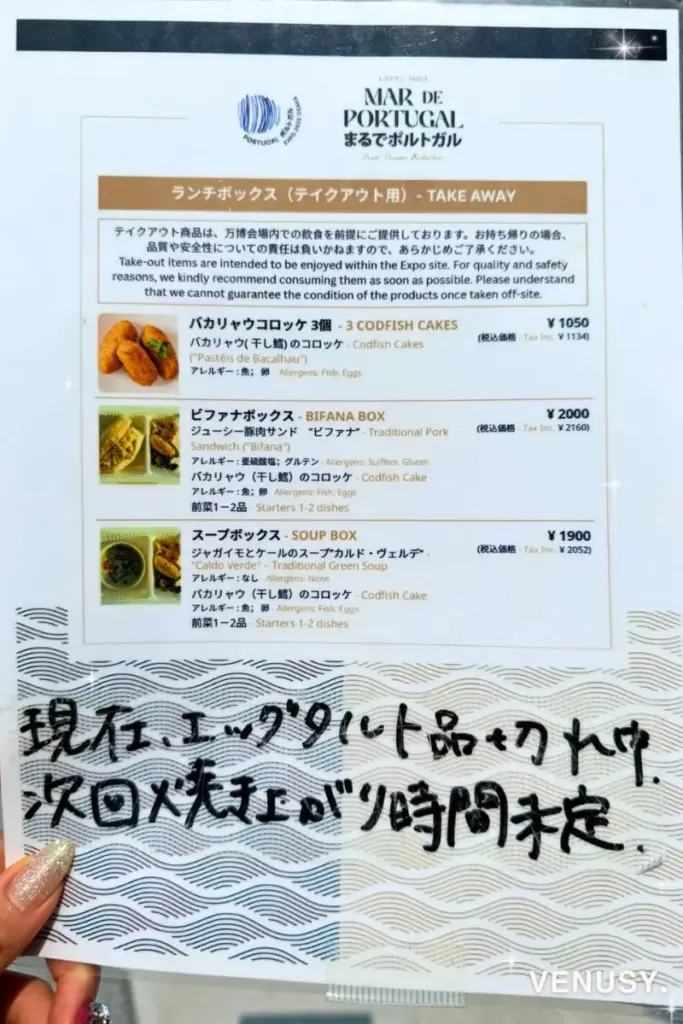 PORTUGAL ポルトガル EXPO 2025 OSAKA
MAR DE
PORTUGAL
まるでポルトガル
ランチボックス（テイクアウト用）- TAKE AWAY
テイクアウト商品は、万博会場内での飲食を前提にご提供しております。お持ち帰りの場合、
品質や安全性についての責任は負いかねますので、あらかじめご了承ください。
Take-out items are intended to be enjoyed within the Expo site. For quality and safety
reasons, we kindly recommend consuming them as soon as possible. Please understand
that we cannot guarantee the condition of the products once taken off-site.
バカリャウコロッケ 3個 - 3 CODFISH CAKES ¥ 1050
バカリャウ( 干し鱈) のコロッケ - Codfish Cakes (税込価格 - Tax Inc. ¥ 1134)
("Pastéis de Bacalhau")
アレルギー : 魚； 卵 Allergens: Fish; Eggs
ビファナボックス - BIFANA BOX ¥ 2000
ジューシー豚肉サンド “ビファナ” - Traditional Pork (税込価格 - Tax Inc. ¥ 2160)
Sandwich ("Bifana")
アレルギー : 亜硫酸塩；グルテン - Allergens: Sulfites. Gluten
バカリャウ（干し鱈）のコロッケ - Codfish Cake
アレルギー : 魚；卵 Allergens: Fish; Eggs
前菜1－2品 Starters 1-2 dishes
スープボックス - SOUP BOX ¥ 1900
ジャガイモとケールのスープ"カルド・ヴェルデ" - (税込価格 - Tax Inc. ¥ 2052)
"Caldo Verde" - Traditional Green Soup
アレルギー : なし - Allergens: None
バカリャウ（干し鱈）のコロッケ - Codfish Cake
アレルギー : 魚； 卵 - Allergens: Fish; Eggs
前菜1－2品 Starters 1-2 dishes
現在、エッグタルト品切れ中.
次回焼き上がり時間未定.
VENUSY.